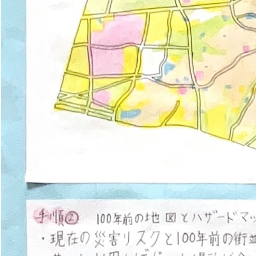 手順② 100年前の地図とハザードマッ
・現在の災害リスクと100年前の街並